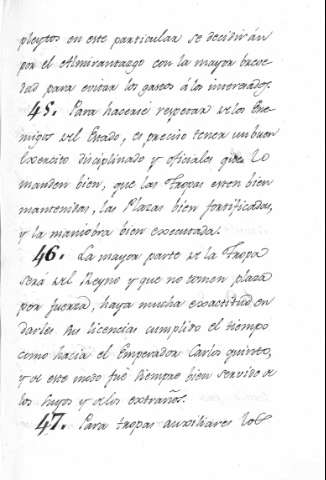 pleytos en este particular se decidirán
por el Almirantazgo con la mayor breve-
dad para evitar los gastos á los interesados.
45. Para hacerse respetar de los Ene-
migos del Estado, es preciso tener un buen
Exercito disciplinado y oficiales que lo
manden bien, que las Tropas esten bien
mantenidas, las Plazas bien fortificadas,
y la maniobra bien executada.
46. La mayor parte de la Tropa
será del Reyno y que no tomen plaza
por fuerza, haya mucha exactitud en
darles sus licencias cumplido el tiempo
como hacia el Emperador Carlos quinto,
y de este modo fué siempre bien servido de
los suyos y de los extraños.
47. Para tropas auxiliares los